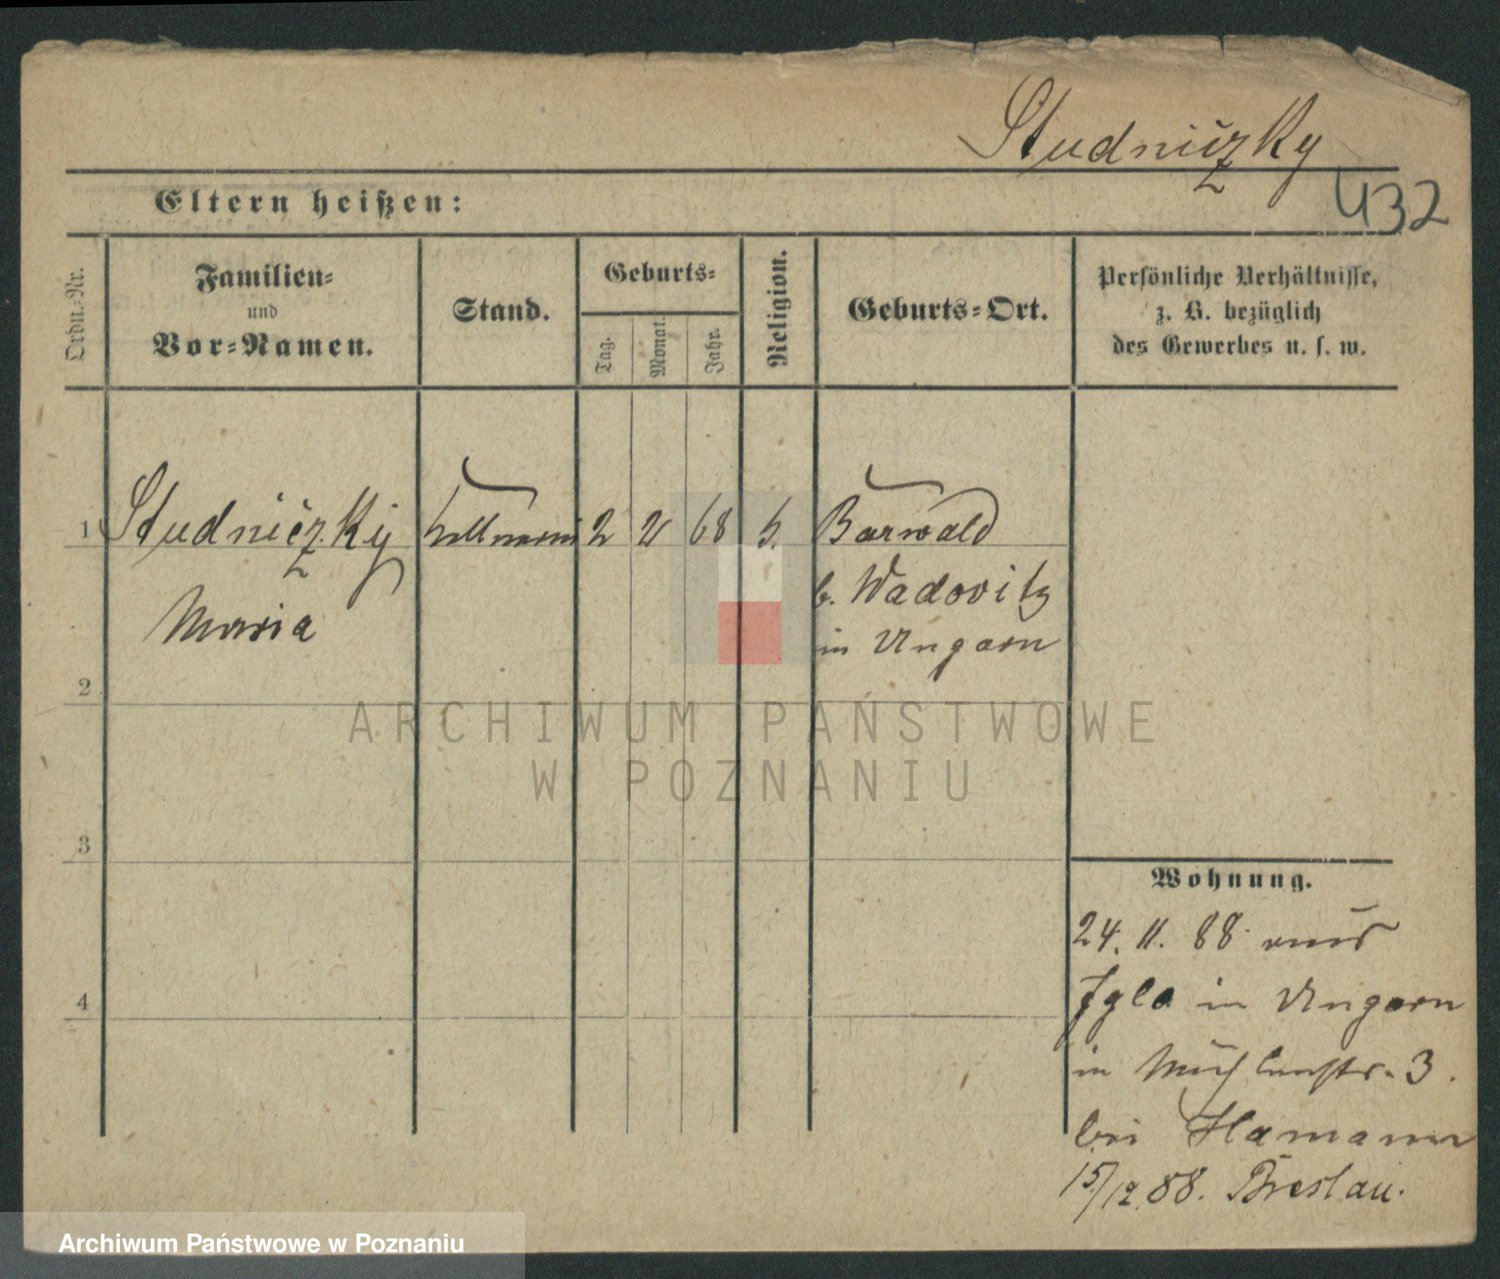 Studniczky
432
Eltern heißen:
Ordn.-Nr.
Familien-
und
Vor-Namen.
Stand.
Geburts-
Tag.
Monat.
Jahr.
Religion.
Geburts-Ort.
Persönliche Verhältnisse,
z. B. bezüglich
des Gewerbes u. s. w.
1 Studniczky 2 68 Barwald
Maria
b. Wadovitz
in Ungarn
2
3
4
Wohnung.
24. 11. 88. aus
Iglo in Ungarn
in Mühlenstr. 3.
bei Hamann
15/12. 88. Breslau.
ARCHIWUM PAŃSTWOWE
W POZNANIU
Archiwum Państwowe w Poznaniu